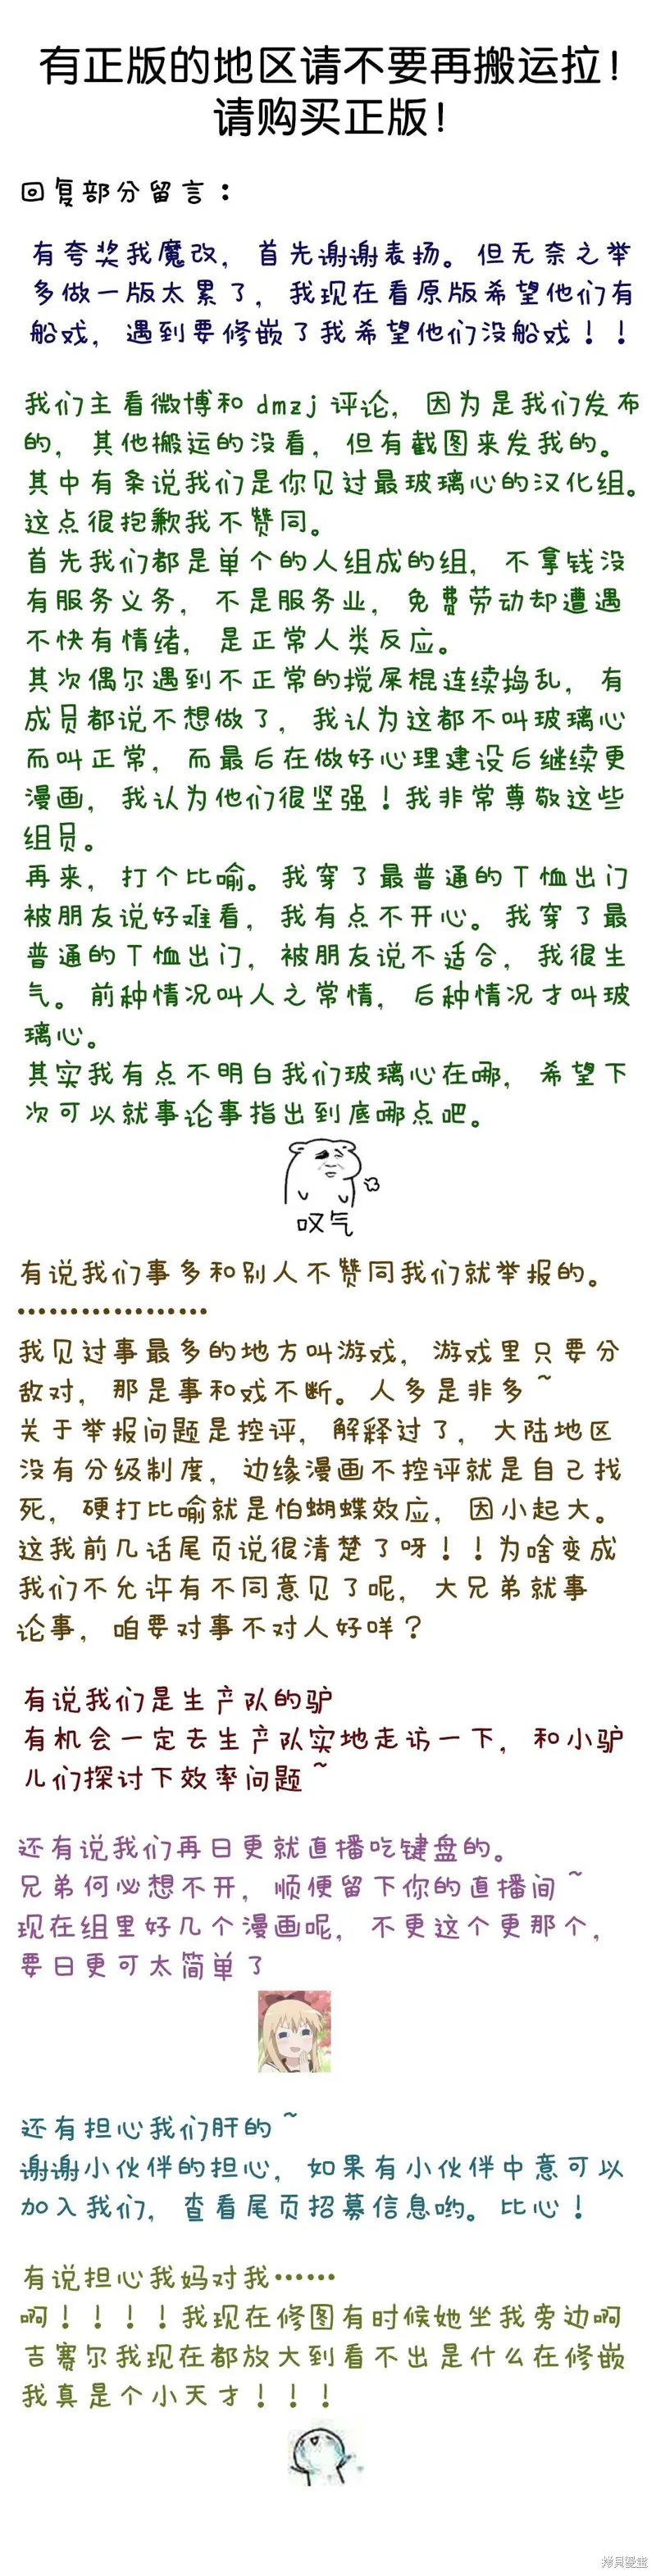 有正版的地区请不要再搬运拉！
请购买正版！
回复部分留言：
有夸奖我魔改，首先谢谢表扬。但无奈之举
多做一版太累了，我现在看原版希望他们有
船戏，遇到要修嵌了我希望他们没船戏！！
我们主看微博和dmzj评论，因为是我们发布
的，其他搬运的没看，但有截图来发我的。
其中有条说我们是你见过最玻璃心的汉化组。
这点很抱歉我不赞同。
首先我们都是单个的人组成的组，不拿钱没
有服务义务，不是服务业，免费劳动却遭遇
不快有情绪，是正常人类反应。
其次偶尔遇到不正常的搅屎棍连续捣乱，有
成员都说不想做了，我认为这都不叫玻璃心
而叫正常，而最后在做好心理建设后继续更
漫画，我认为他们很坚强！我非常尊敬这些
组员。
再来，打个比喻。我穿了最普通的T恤出门
被朋友说好难看，我有点不开心。我穿了最
普通的T恤出门，被朋友说不适合，我很生
气。前种情况叫人之常情，后种情况才叫玻
璃心。
其实我有点不明白我们玻璃心在哪，希望下
次可以就事论事指出到底哪点吧。
叹气
有说我们事多和别人不赞同我们就举报的。
………………
我见过事最多的地方叫游戏，游戏里只要分
敌对，那是事和戏不断。人多是非多~
关于举报问题是控评，解释过了，大陆地区
没有分级制度，边缘漫画不控评就是自己找
死，硬打比喻就是怕蝴蝶效应，因小起大。
这我前几话尾页说很清楚了呀！！为啥变成
我们不允许有不同意见了呢，大兄弟就事
论事，咱要对事不对人好咩？
有说我们是生产队的驴
有机会一定去生产队实地走访一下，和小驴
儿们探讨下效率问题~
还有说我们再日更就直播吃键盘的。
兄弟何必想不开，顺便留下你的直播间~
现在组里好几个漫画呢，不更这个更那个，
要日更可太简单了
还有担心我们肝的~
谢谢小伙伴的担心，如果有小伙伴中意可以
加入我们，查看尾页招募信息哟。比心！
有说担心我妈对我……
啊！！！！我现在修图有时候她坐我旁边啊
吉赛尔我现在都放大到看不出是什么在修嵌
我真是个小天才！！！
拷貝漫畫